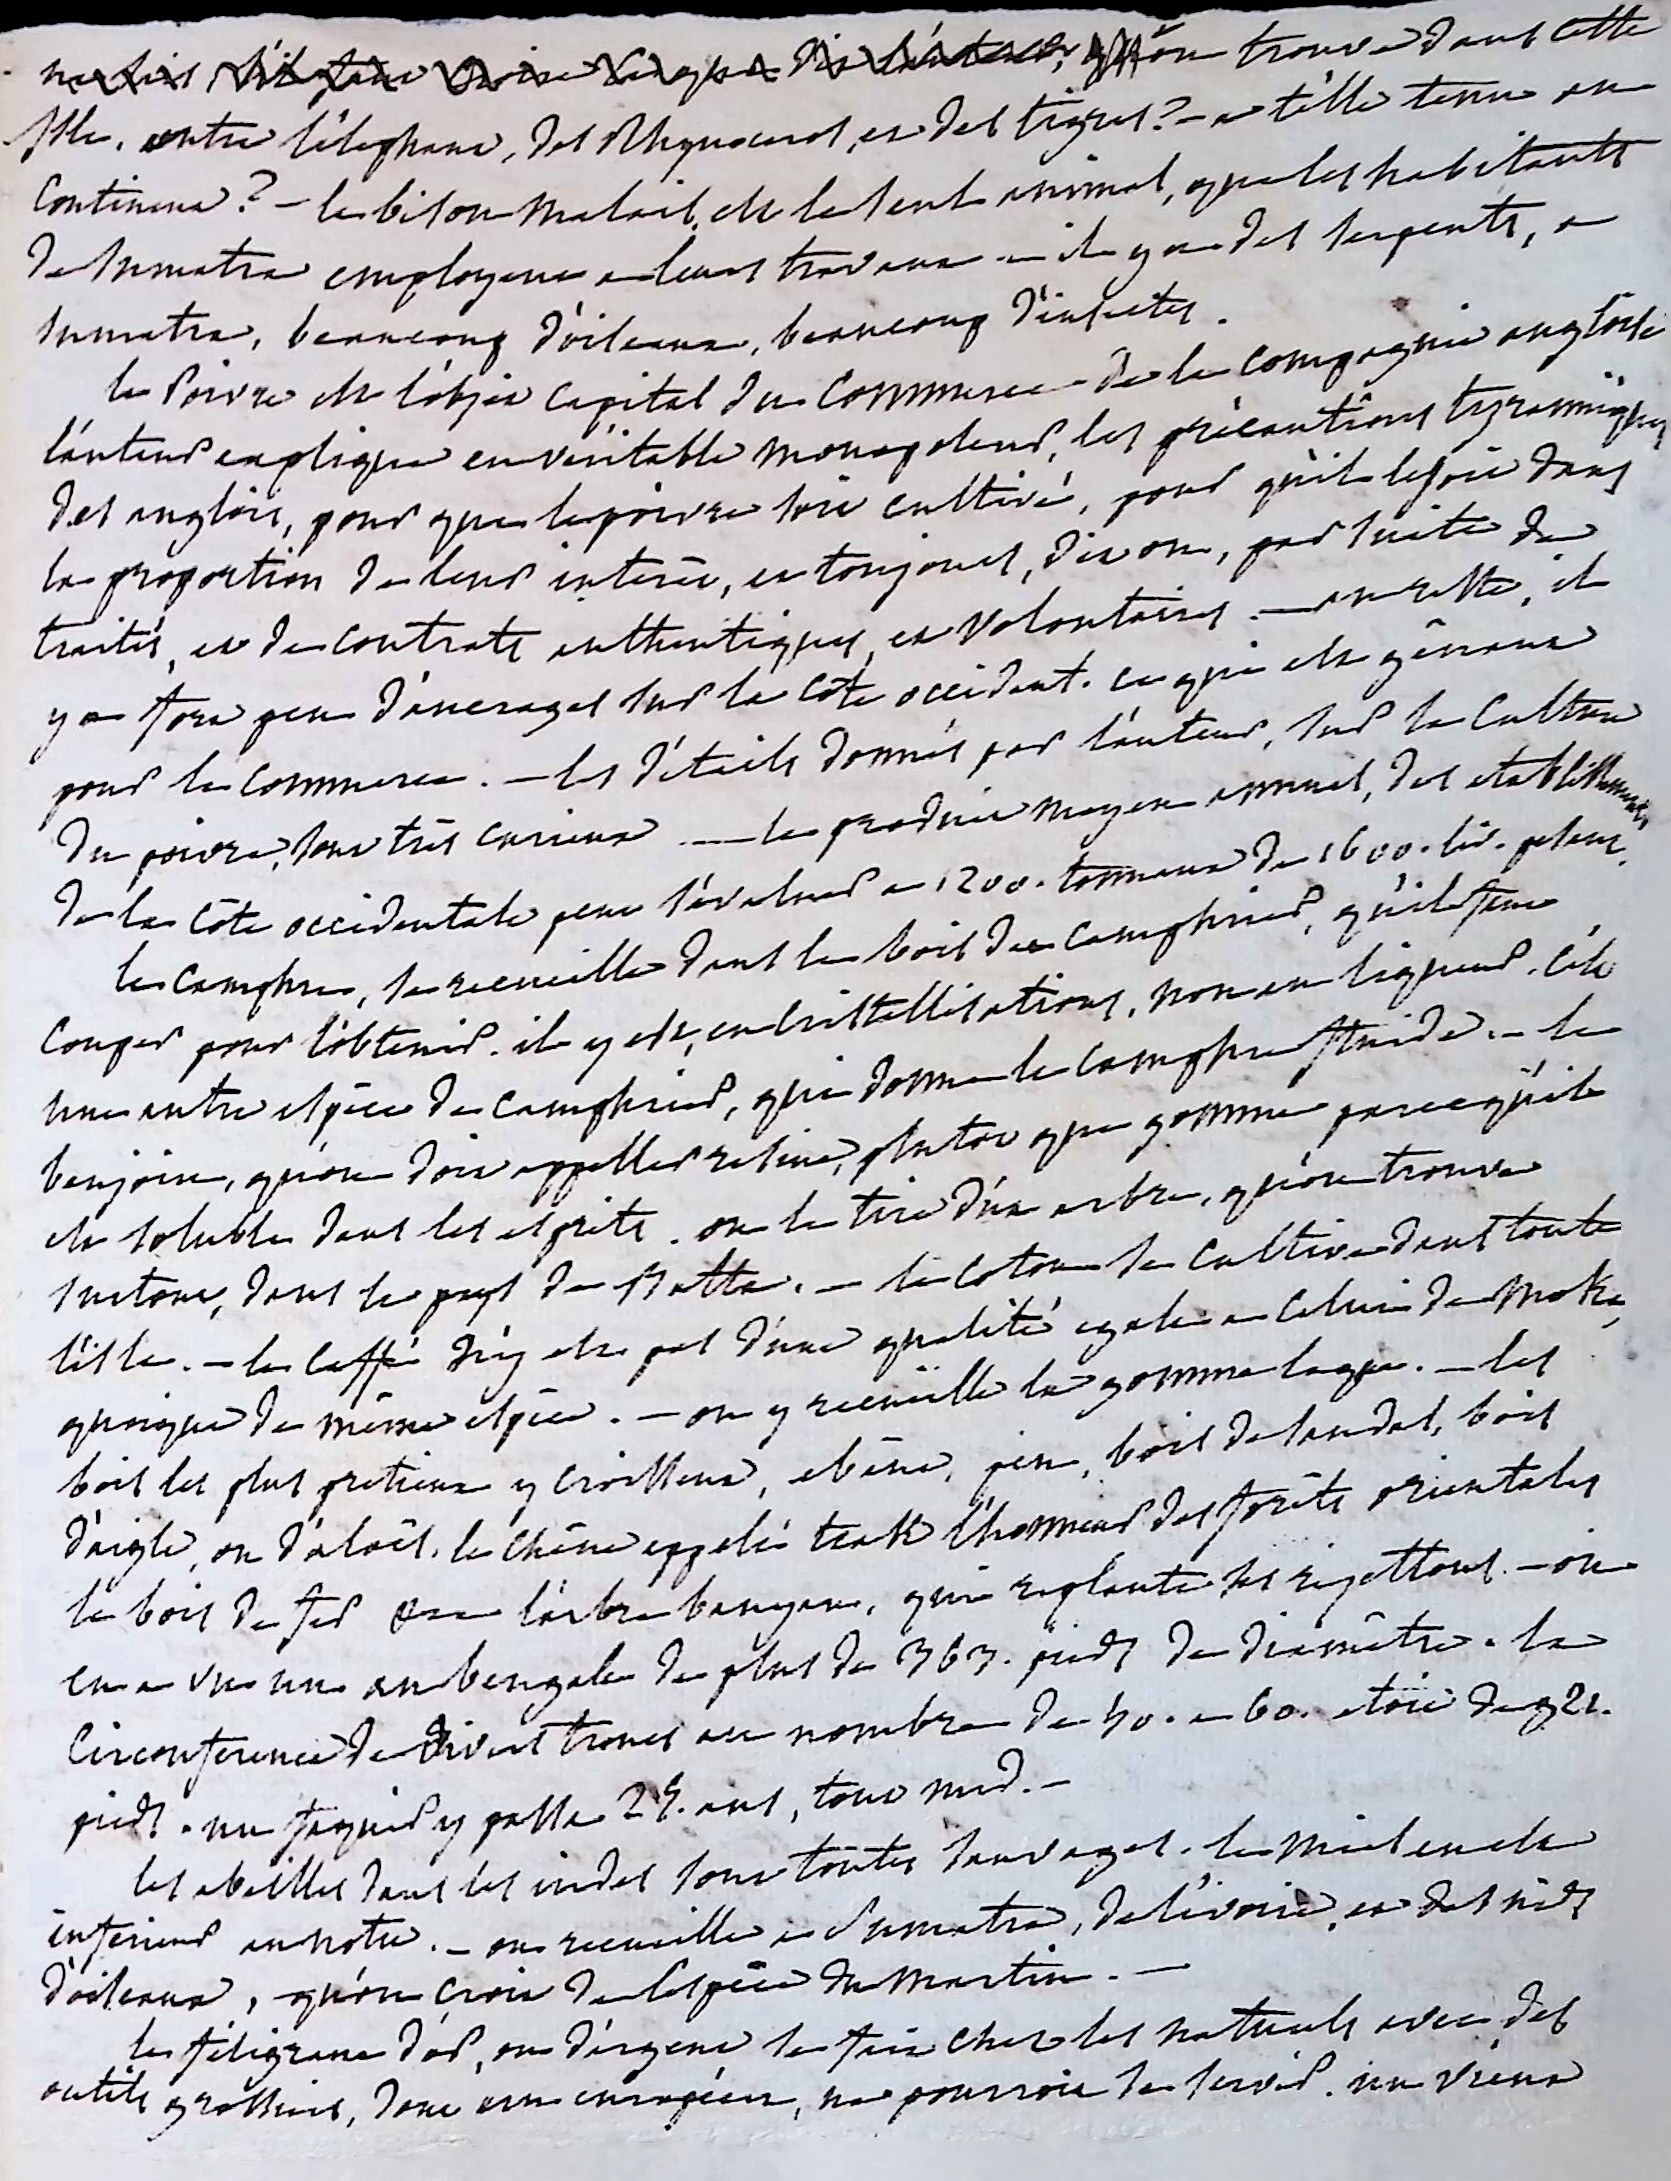 on trouve dans cette
Isle, outre l'élephant, des Rhynoceros, et des tigres? - a t'elle tenu au
continent? - le bison malais, est le seul animal, que les habitants
de Sumatra employent a leurs travaux - il y a des serpents, a
Sumatra, beaucoup d'oiseaux, beaucoup d'insectes.
le Poivre est l'objet capital du commerce de la compagnie angloise
l'auteur explique en véritable monopoleur, les précautions tyranniques
des anglois, pour que le poivre soit cultivé, pour qu'il le soit dans
la proportion de leur interêt, et toujours, dit on, par suite de
traités, et de contrats authentiques, et volontaires. - au reste, il
y a fort peu d'ancrages sur la côte occident. ce qui est gênant
pour le commerce. - les détails donnés par l'auteur, sur la culture
du poivre, sont très curieux - le produit moyen annuel, des etablissements
de la côte occidentale peut s'évaluer a 1200. tonneaux de 1600. liv. pesant.
le camphre, se recueille dans le bois du camphrier, qu'il faut
couper pour l'obtenir. il y est, en cristallisations, non en liqueur. c'est
une autre espèce de camphrier, qui donne le camphre fluide. - le
benjoin, qu'on doit appeller resine, plutot que gomme parcequ'il
est soluble dans les esprits. on le tire d'un arbre, qu'on trouve
surtout, dans le pays de Batta. - le coton se cultive dans toute
l'isle. - le caffé n'y est pas d'une qualité egale a celui de Moka,
quoique de même espèce. - on y recueille la gomme laque. - les
bois les plus pretieux y croissent, ebène, pin, bois de sandal, bois
d'aigle, ou d'aloës. le chêne appelé teak l'honneur des forêts orientales
le bois de fer l'arbre banyan, qui replante ses rejettons. - on
en a vu un au bengale de plus de 363. pieds de diamêtre. la
circonference de divers troncs au nombre de 50. a 60. etoit de 921.
pieds. un faquir y passa 25. ans, tout nud. -
les abeilles dans les indes sont toutes sauvages. le miel en est
inferieur au notre. - on recueille a Sumatra, de l'ivoire, et des nids
d'oiseaux, qu'on croit de l'espèce du martin. -
le filigrane d'or, ou d'argent se fait chez les naturels avec des
outils grossiers, dont un européen, ne pourroit se servir. un vieux